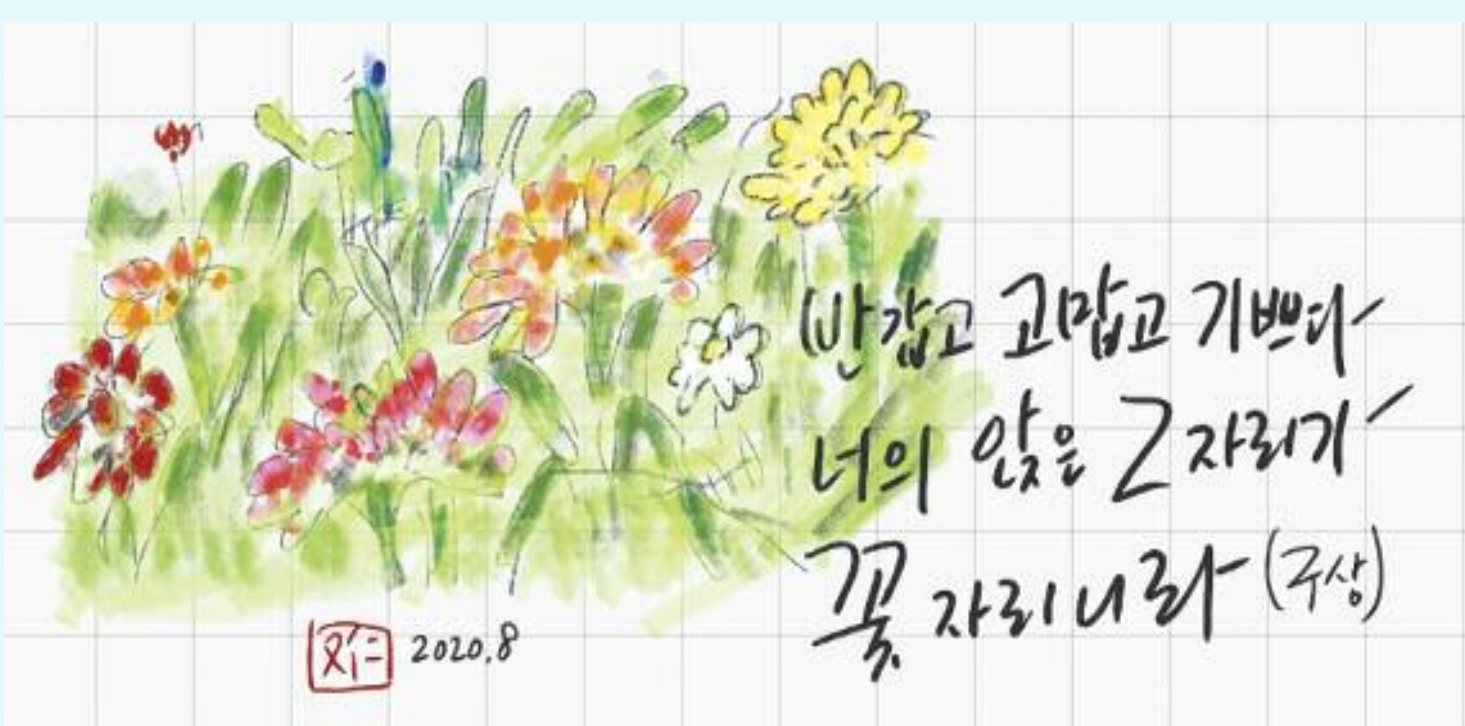 반갑고 고맙고 기쁘다
너의 앉은 그 자리가
꽃자리니라 (구상)
2020.8